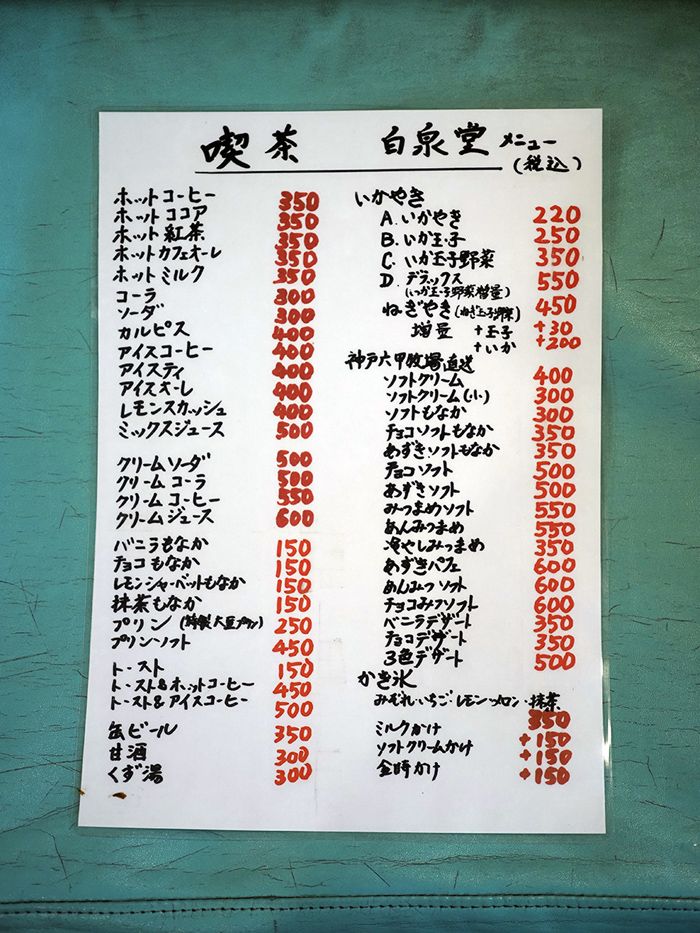 喫茶 白泉堂 メニュー
(税込)
ホットコーヒー 350
ホットココア 350
ホット紅茶 350
ホットカフェオーレ 350
ホットミルク 350
コーラ 300
ソーダ 300
カルピス 400
アイスコーヒー 400
アイスティ 400
アイスオーレ 400
レモンスカッシュ 400
ミックスジュース 500
クリームソーダ 500
クリームコーラ 500
クリームコーヒー 550
クリームジュース 600
バニラもなか 150
チョコもなか 150
レモンシャーベットもなか 150
抹茶もなか 150
プリン(特製大豆プリン) 250
プリンソフト 450
トースト 150
トースト&ホットコーヒー 450
トースト&アイスコーヒー 500
缶ビール 350
甘酒 300
くず湯 300
いかやき
A.いかやき 220
B.いか玉子 250
C.いか玉子野菜 350
D.デラックス 550
(いか玉子野菜増量)
ねぎやき(ねぎ玉子野菜) 450
増量 +玉子 +30
+いか +200
神戸六甲牧場直送
ソフトクリーム 400
ソフトクリーム(小) 300
ソフトもなか 300
チョコソフトもなか 350
あずきソフトもなか 350
チョコソフト 500
あずきソフト 500
みつまめソフト 550
あんみつまめ 550
冷やしみつまめ 350
あずきパフェ 600
あんみつソフト 600
チョコみつソフト 600
バニラデザート 350
チョコデザート 350
3色デザート 500
かき氷
みぞれ・いちご・レモン・メロン・抹茶
350
ミルクかけ +150
ソフトクリームかけ +150
金時かけ +150